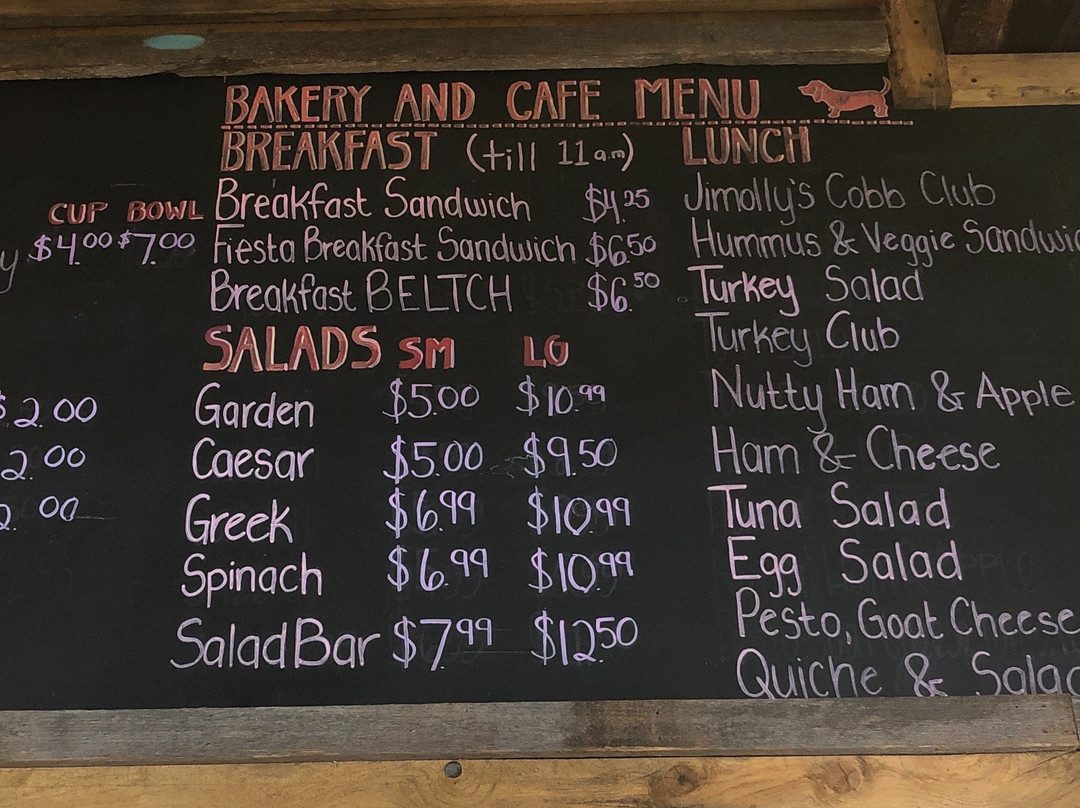 BAKERY AND CAFE MENU
CUP BOWL
$4.00 $7.00
$2.00
2.00
2.00
BREAKFAST (till 11am)
Breakfast Sandwich $4.25
Fiesta Breakfast Sandwich $6.50
Breakfast BELTCH $6.50
SALADS SM LG
Garden $5.00 $10.99
Caesar $5.00 $9.50
Greek $6.99 $10.99
Spinach $6.99 $10.99
Salad Bar $7.99 $12.50
LUNCH
Jimolly's Cobb Club
Hummus & Veggie Sandwic
Turkey Salad
Turkey Club
Nutty Ham & Apple
Ham & Cheese
Tuna Salad
Egg Salad
Pesto, Goat Cheese
Quiche & Salad